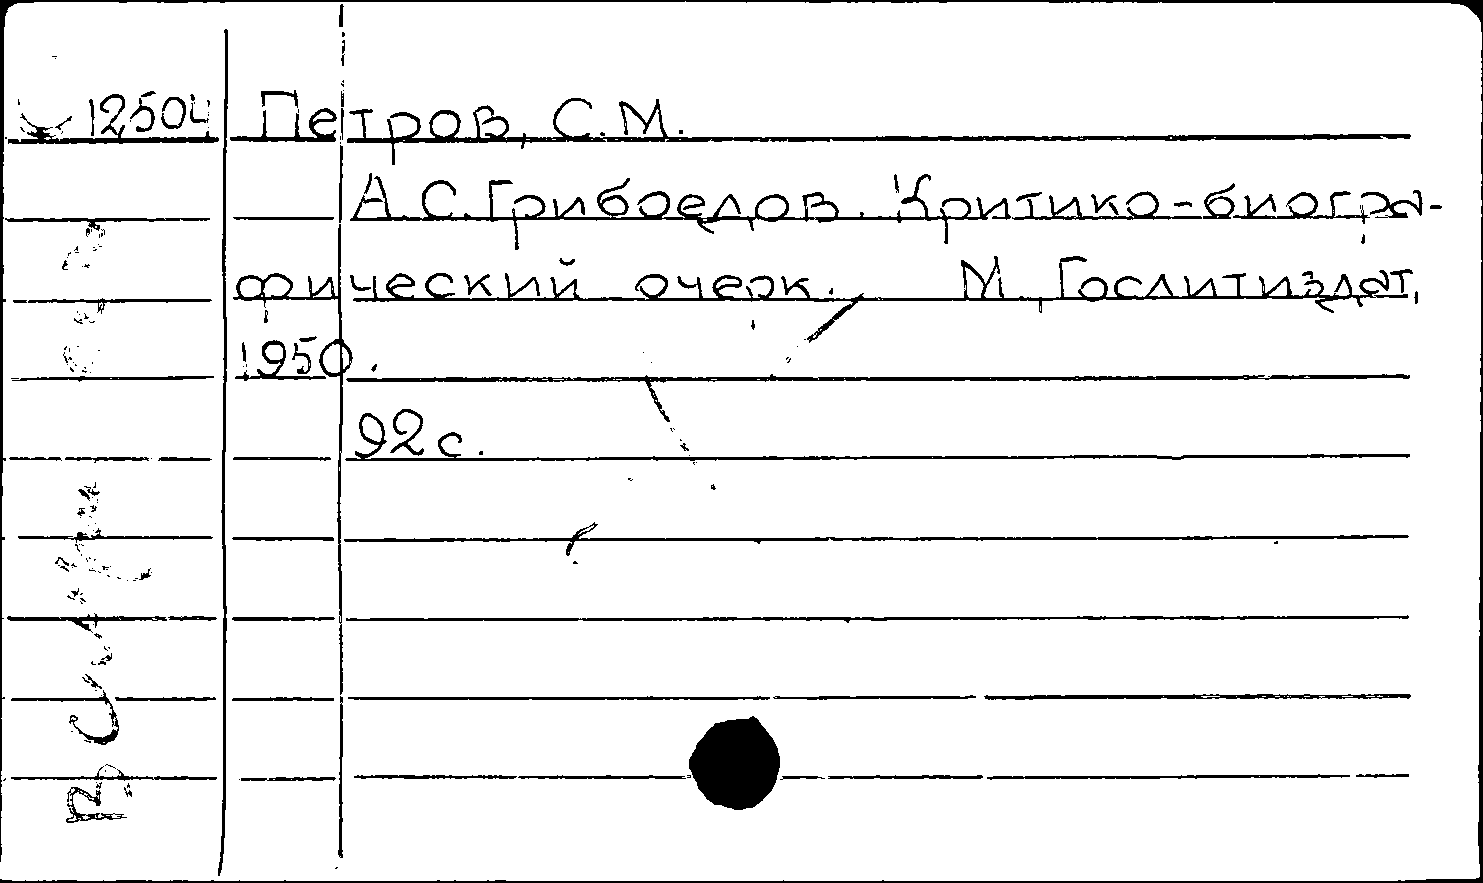 12504 Петров, С.М.
А.С.Грибоедов. Критико-биогра-
фический очерк. М.,Гослитиздат,
1950.
92с.